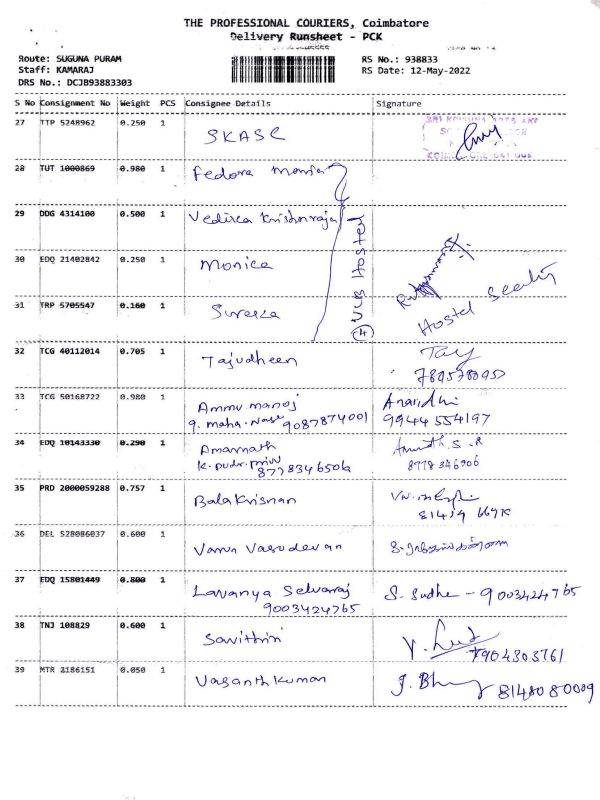 THE PROFESSIONAL COURIERS, Coimbatore
Delivery Runsheet - PCK
Route: SUGUNA PURAM
Staff: KAMARAJ
DRS No.: DCJB93883303
RS No.: 938833
RS Date: 12-May-2022
S No Consignment No Weight PCS Consignee Details Signature
27 TTP 5248962 0.250 1 SKASC
28 TUT 1000869 0.980 1 Fedora Monia
29 DDG 4314100 0.500 1 Krishnaraja
30 EDQ 21402842 0.250 1 Monica
31 TRP 5705547 0.160 1
Hostel
4
Hostel
32 TCG 40112014 0.705 1 Tajudheen Taj
33 TCG 50168722 0.980 1 Ammu manoj
9087874001 9944554197
34 EDQ 10143330 0.290 1 Amarnath
8778346506
35 PRD 2000059288 0.757 1 Balakrisnan
36 DEL 528086037 0.600 1 Vasudevan
37 EDQ 15801449 0.800 1 Lavanya Selvaraj S. Sudha - 9003424765
9003424765
38 TNJ 108829 0.600 1 Savithri
7904303761
39 MTR 2186151 0.050 1 Vasanthkumar 8148080009